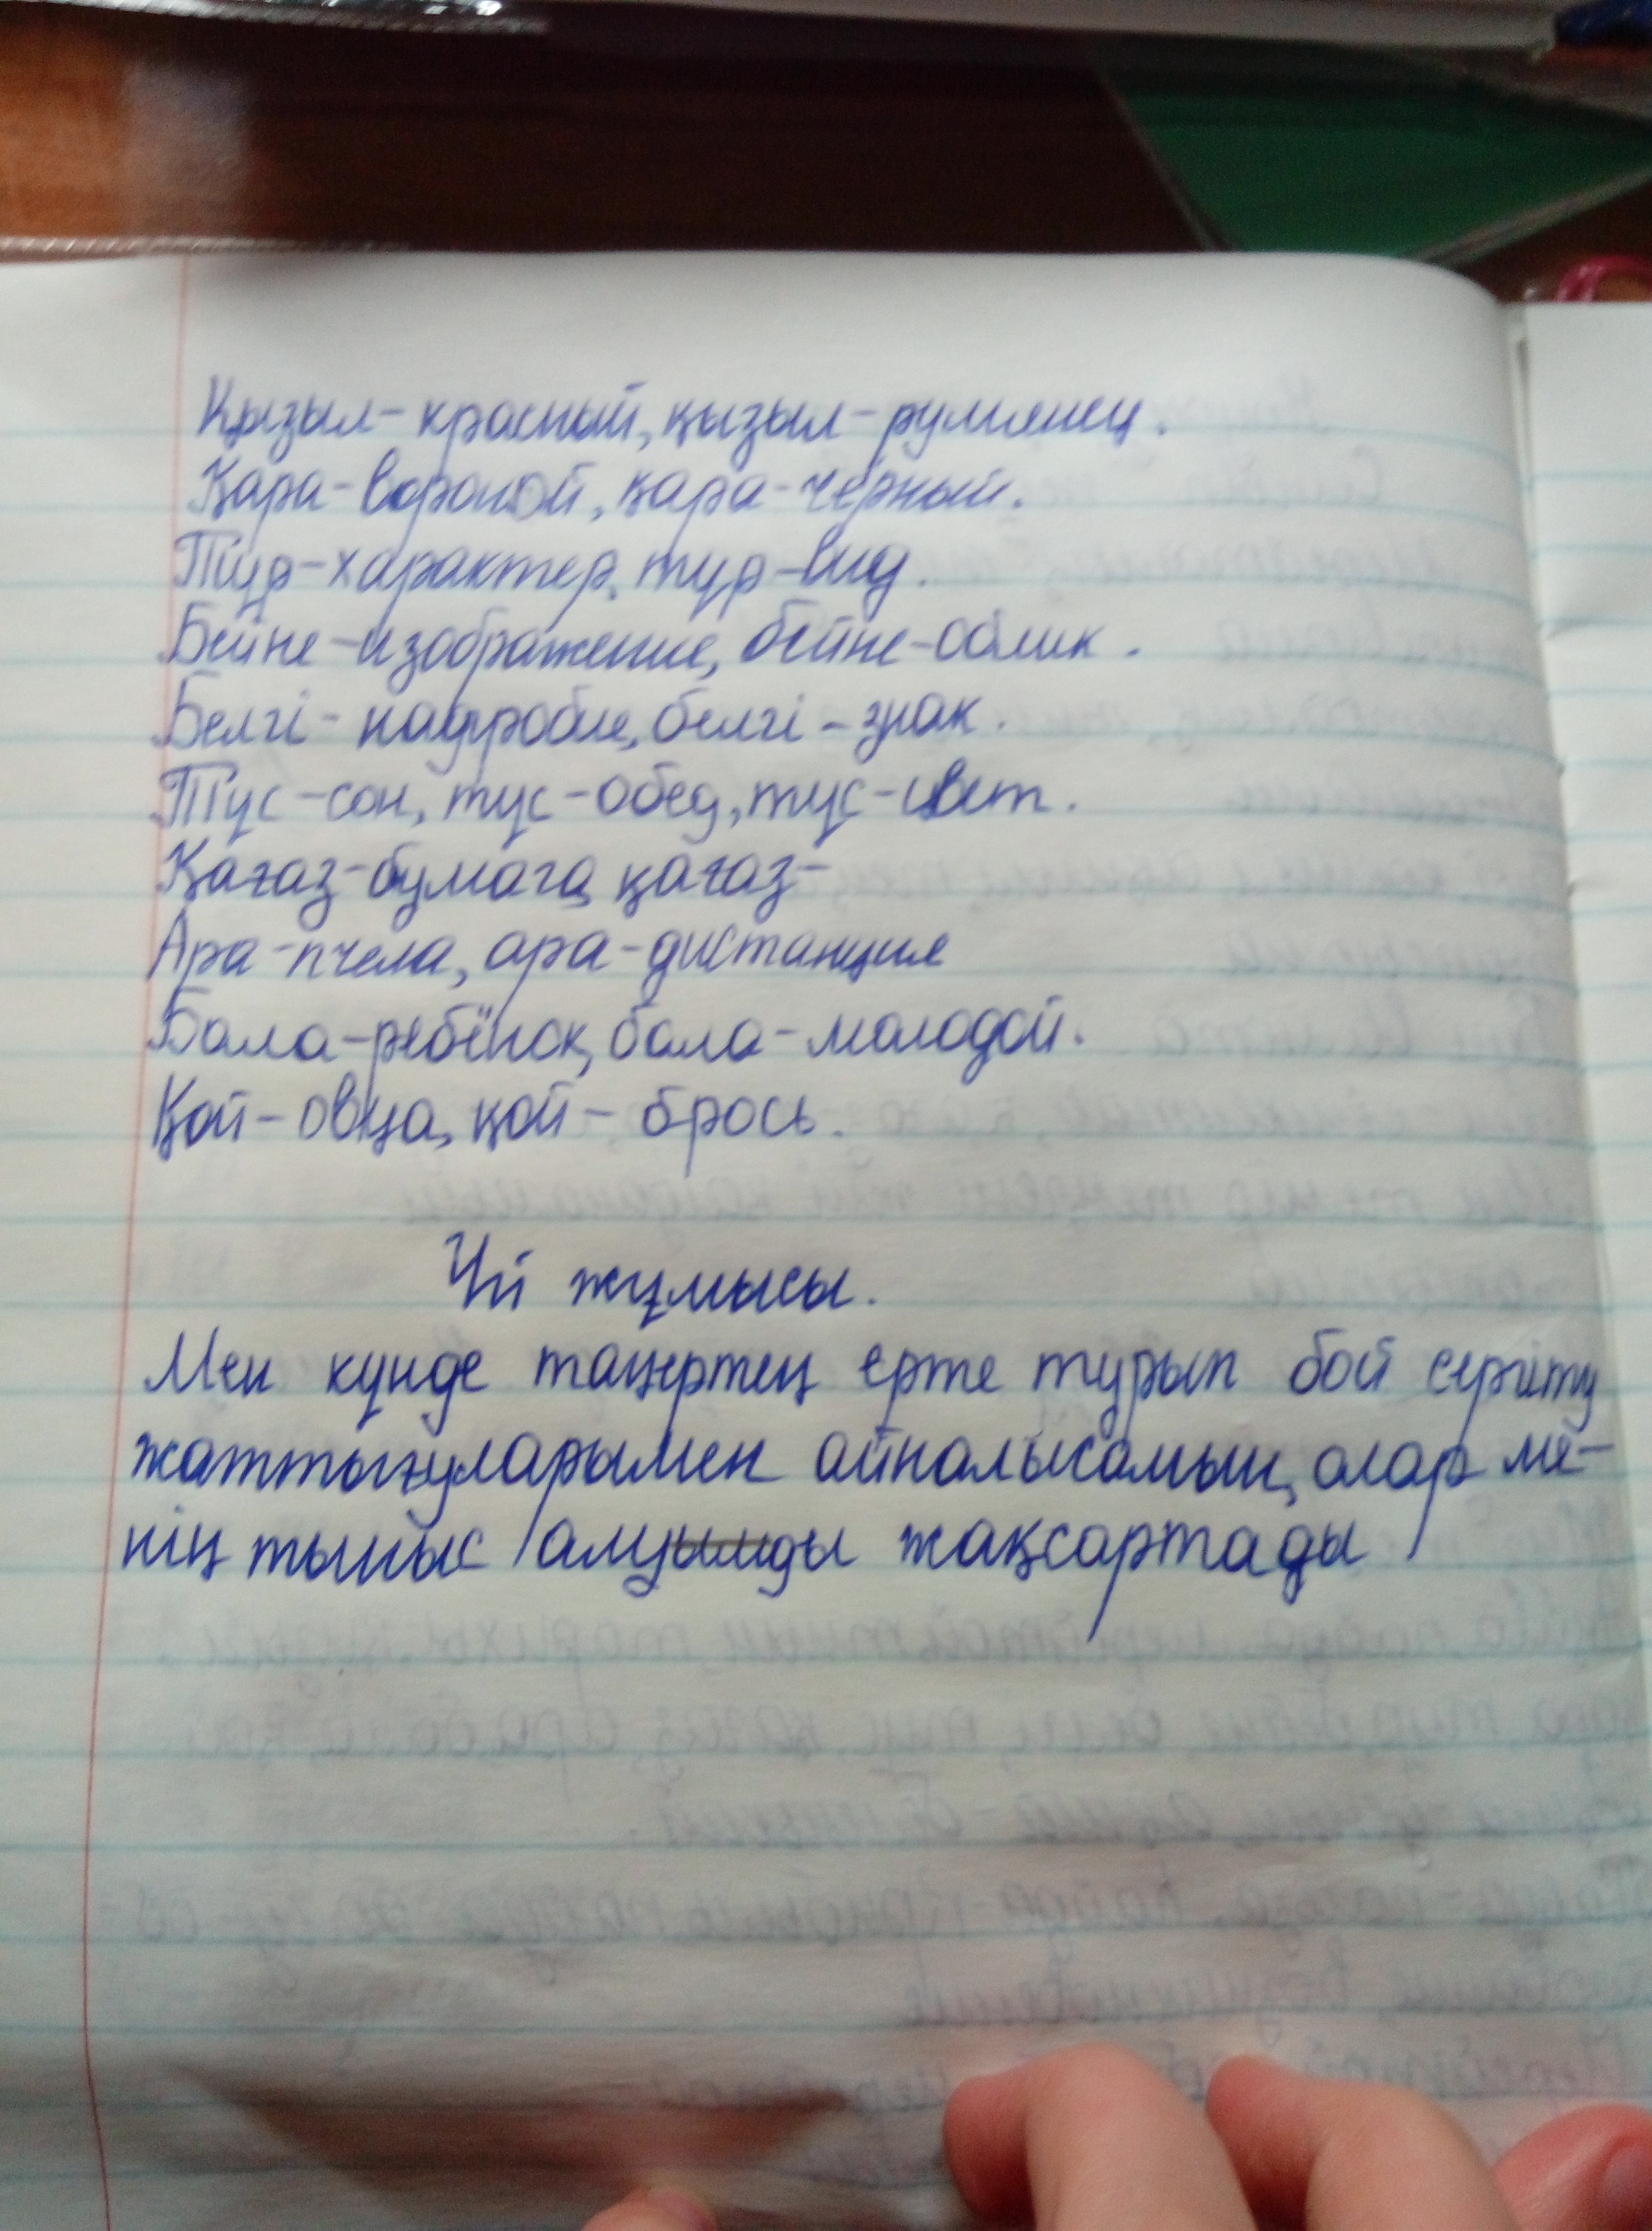 Қызыл- красный, қызыл- румянец.
Қара- вороной, қара- чёрный.
Түр-характер, түр-вид.
Бейне-изображение, бейне-облик.
Белгі- надгробие, белгі- знак.
Түс-сон, түс-обед, түс-цвет.
Қағаз-бумага, қағаз-
Ара-пчела, ара-дистанция
Бала-ребёнок, бала-молодой.
Қой-овца, қой- брось.
Үй жұмысы.
Мен күнде таңертең ерте тұрып бой сергіту
жаттығуларымен айналысамын, олар ме-
нің тыныс алуымды жақсартады